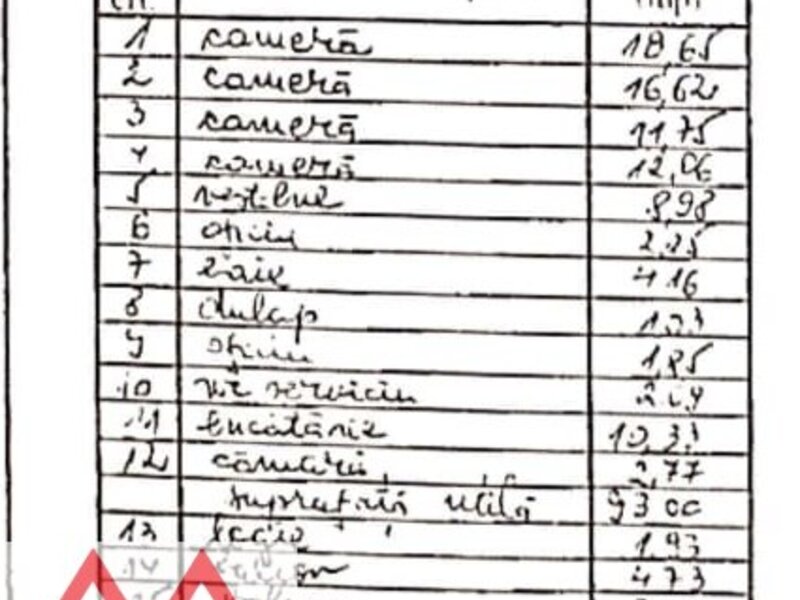 1 cameră 18,65
2 cameră 16,62
3 cameră 11,75
4 cameră 12,06
5 vestibul 8,98
6 oficiu 2,25
7 baie 4,16
8 dulap
9 oficiu 1,85
10 wc serviciu
11 bucătărie 10,33
12 cămară 2,77
suprafață utilă 93 00
13 logie 1,93
14 4 73